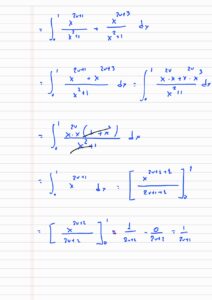 = ∫₀¹ x^(2n+1)/(x²+1) + x^(2n+3)/(x²+1) dx
= ∫₀¹ (x^(2n+1) + x^(2n+3))/(x²+1) dx = ∫₀¹ (x·x^(2n) + x^(2n)·x³)/(x²+1) dx
= ∫₀¹ x·x^(2n)(1+x²)/(x²+1) dx
= ∫₀¹ x^(2n+1) dx = [x^(2n+1+1)/(2n+1+1)]₀¹
= [x^(2n+2)/(2n+2)]₀¹ = 1/(2n+2) - 0/(2n+2) = 1/(2n+2)